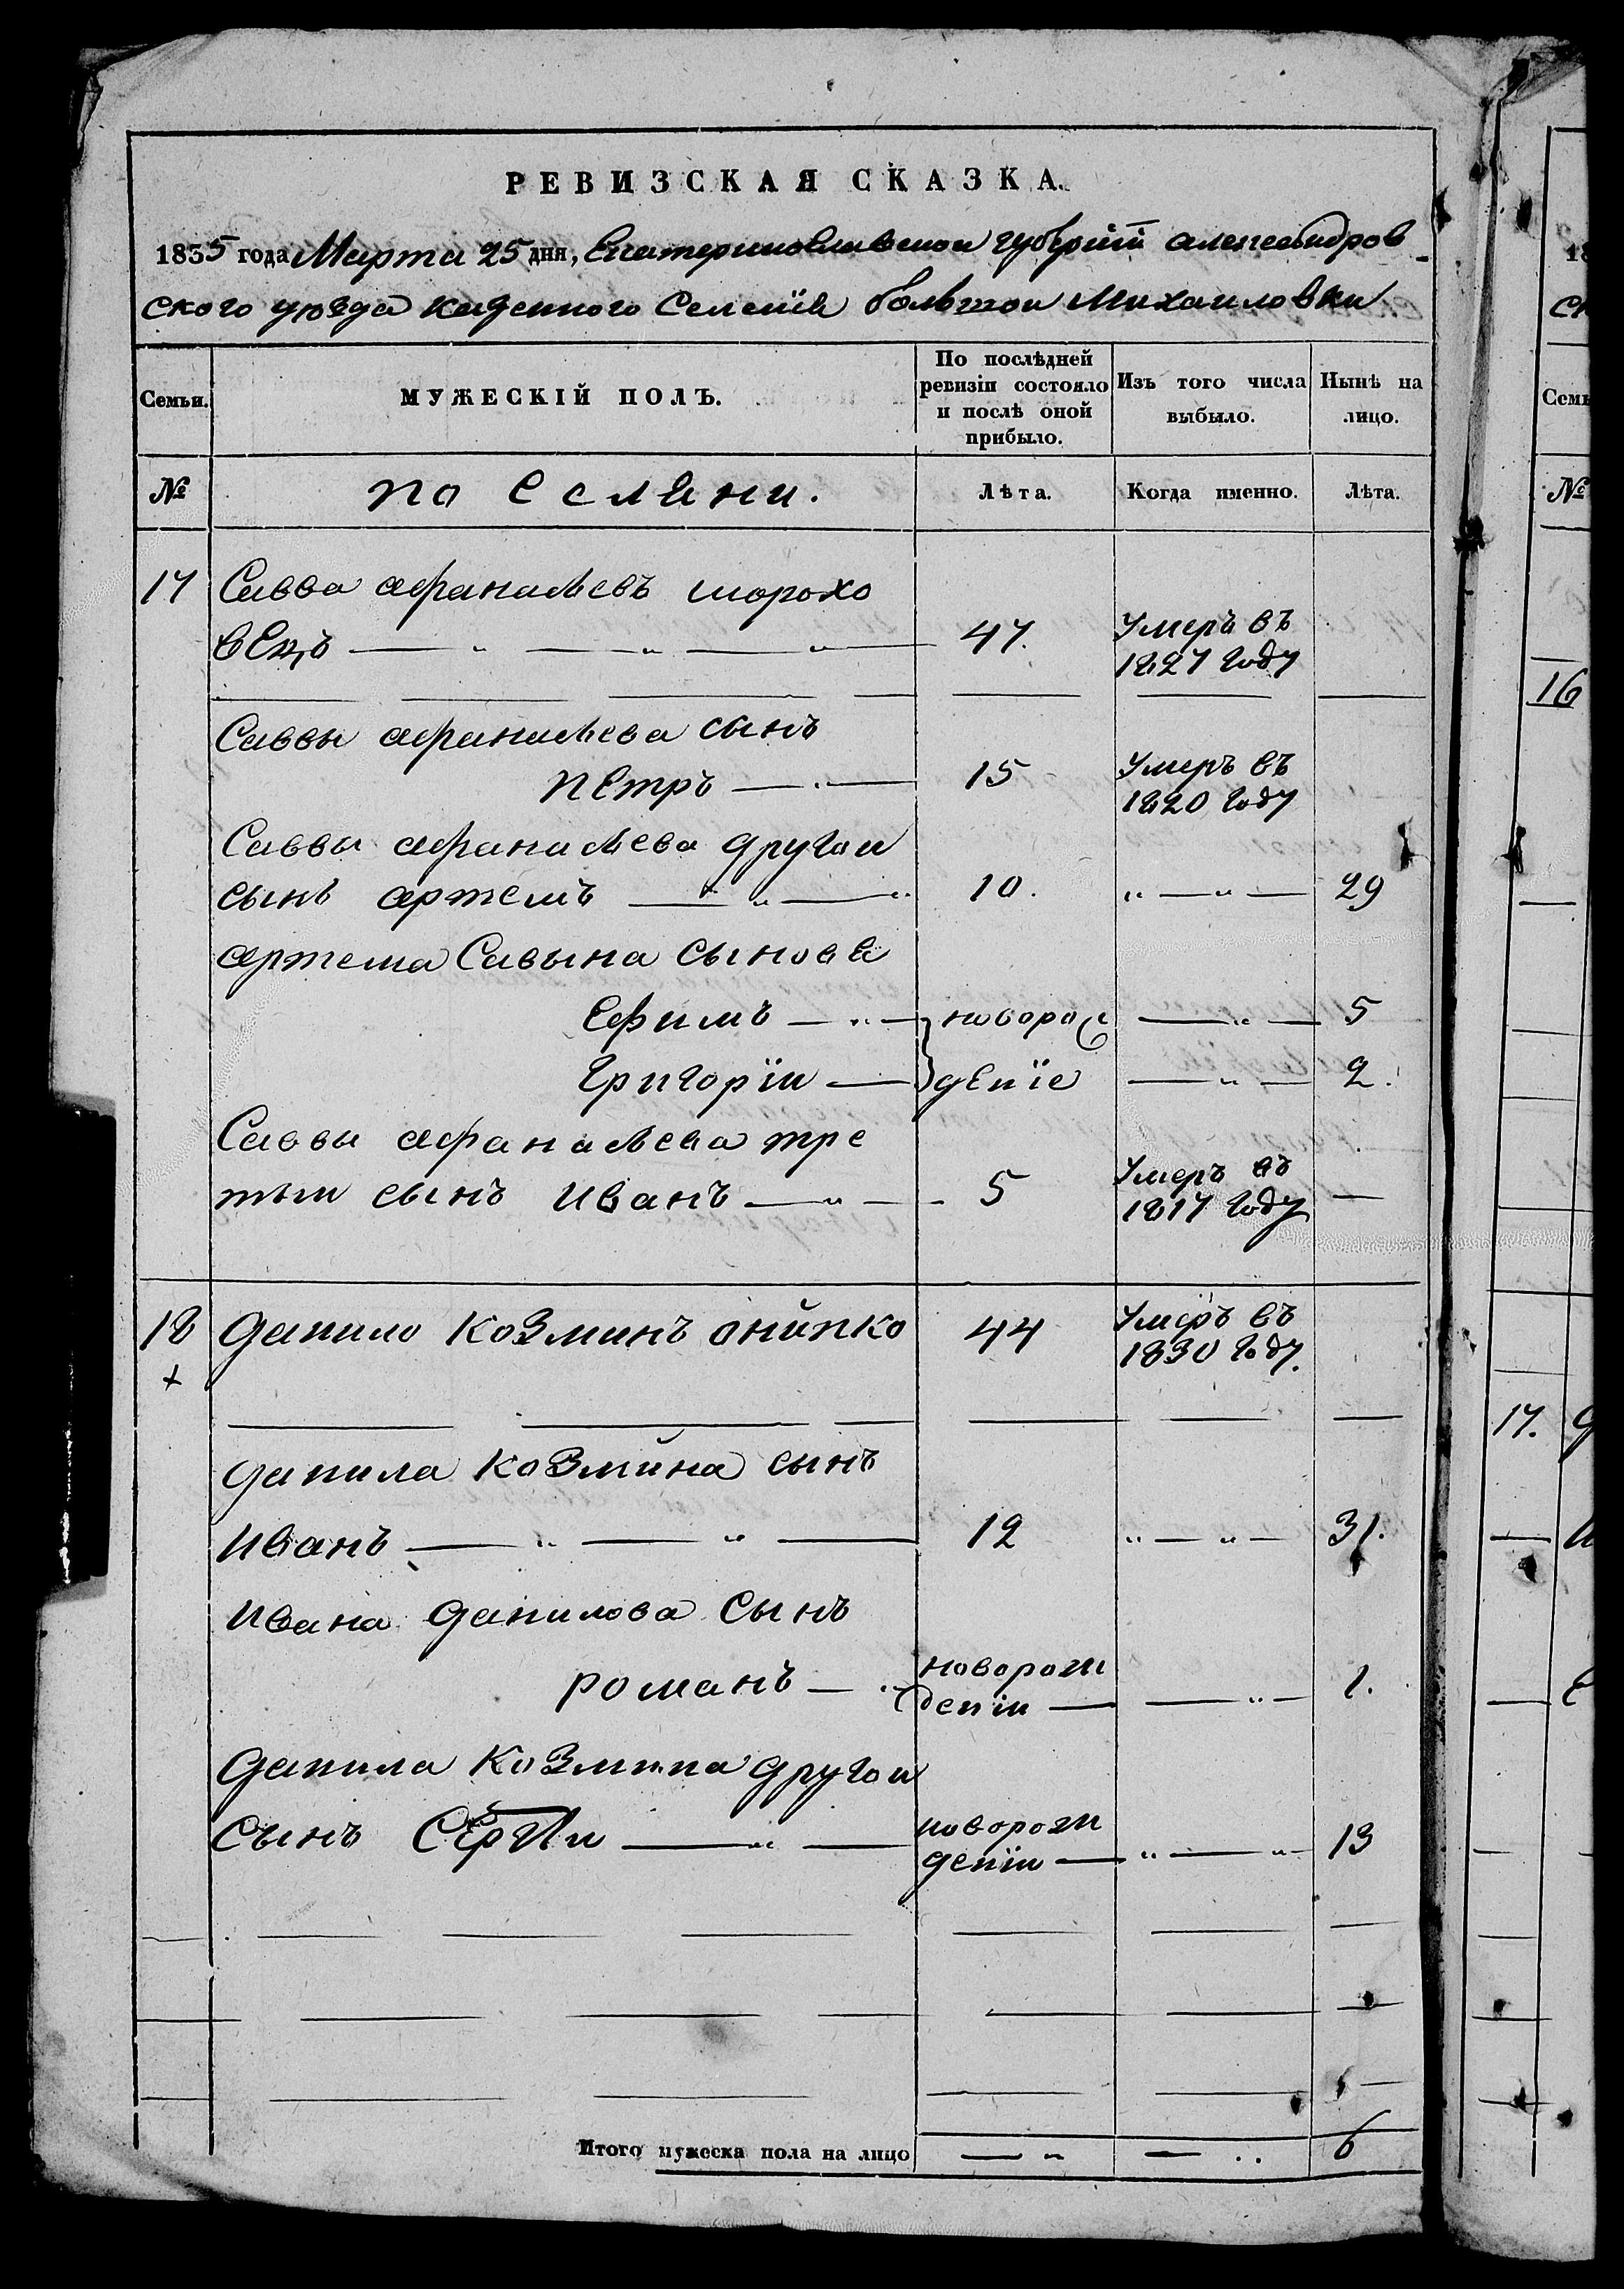 РЕВИЗСКАЯ СКАЗКА.
1835 года Марта 25 дня, Екатеринославской губернїи александров
ского уѣзда казенного Селенїя большои Михаиловки
Семьи.
МУЖЕСКІЙ ПОЛЪ.
По послѣдней ревизіи состояло и послѣ оной прибыло.
Изъ того числа выбыло.
Нынѣ на лицо.
№ поселяни. Лѣта. Когда именно. Лѣта.
17 Савва афанасьевъ шорохо
вецъ 47. Умеръ въ 1827 году
Саввы афанасьева сынъ
Петръ 15 Умеръ въ 1820 году
Саввы афанасьева другои
сынъ артемъ 10. 29
артема Савына сыновя
Ефимъ новорож 5
Григорїи денїе 2.
Саввы афанасьева тре
тыи сынъ Иванъ 5 Умеръ въ 1817 году
18 данило козминъ онипко 44 Умеръ въ 1830 году.
+
данила козмина сынъ
Иванъ 12 31.
Ивана данилова сынъ
романъ новорож денїи 1.
данила Козмина другои
сынъ Сергѣи новорож денїи 13
Итого мужеска пола на лицо 6
18
ск
Семь
№
16
17.